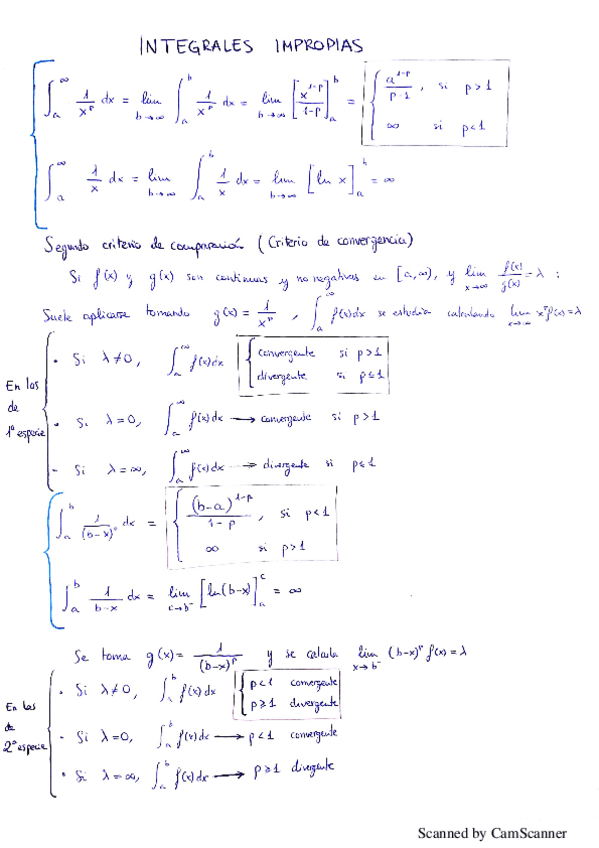 INTEGRALES IMPROPIAS
∫_a^∞ 1/x^p dx = lim_{b→∞} ∫_a^b 1/x^p dx = lim_{b→∞} [x^{1-p}/(1-p)]_a^b = { a^{1-p}/(p-1), si p>1
∞ si p<1
∫_a^∞ 1/x dx = lim_{b→∞} ∫_a^b 1/x dx = lim_{b→∞} [ln x]_a^b = ∞
Segundo criterio de comparación (Criterio de convergencia)
Si f(x) y g(x) son continuas y no negativas en [a,∞), y lim_{x→∞} f(x)/g(x) = λ :
Suele aplicarse tomando g(x) = 1/x^p , ∫_a^∞ f(x)dx se estudia calculando lim_{x→∞} x^p f(x) = λ
En las de 1ª especie
• Si λ≠0, ∫_a^∞ f(x)dx { convergente si p>1
divergente si p≤1
• Si λ=0, ∫_a^∞ f(x)dx → convergente si p>1
- Si λ=∞, ∫_a^∞ f(x)dx → divergente si p≤1
∫_a^b 1/(b-x)^p dx = { (b-a)^{1-p}/(1-p), si p<1
∞ si p>1
∫_a^b 1/(b-x) dx = lim_{c→b⁻} [ln(b-x)]_a^c = ∞
Se toma g(x) = 1/(b-x)^p y se calcula lim_{x→b⁻} (b-x)^p f(x) = λ
En las de 2ª especie
• Si λ≠0, ∫_a^b f(x)dx { p<1 convergente
p≥1 divergente
- Si λ=0, ∫_a^b f(x)dx → p<1 convergente
• Si λ=∞, ∫_a^b f(x)dx → p≥1 divergente
Scanned by CamScanner